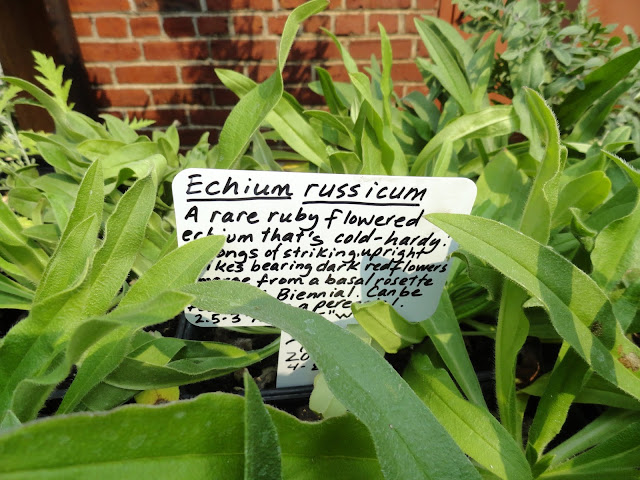 Echium russicum
A rare ruby flowered
echium that's cold-hardy.
ongs of striking upright
ikes bearing dark red flowers
merge from a basal rosette
Biennial. Can be
a pere
2.5-3
20
4-